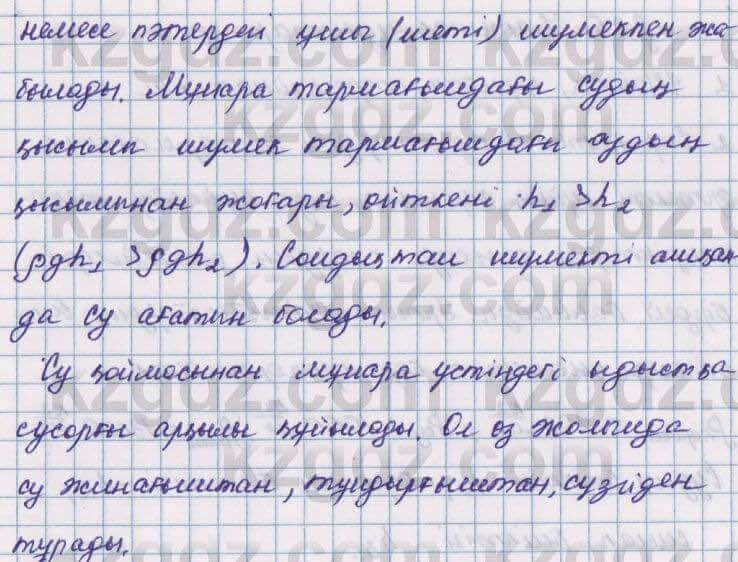 немесе пәтердегі ұшы (шеті) шүмекпен жа-
былады. Мұнара тармағындағы судың
қысымы шүмек тармағындағы судың
қысымынан жоғары, өйткені h₁ > h₂
(ρgh₁ > ρgh₂). Сондықтан шүмекті ашқан-
да су ағатын болады.
Су қоймасынан мұнара үстіндегі ыдысқа
сусорғы арқылы құйылады. Ол өз жолында
су жинағыштан, тұндырғыштан, сүзгіден
тұрады.